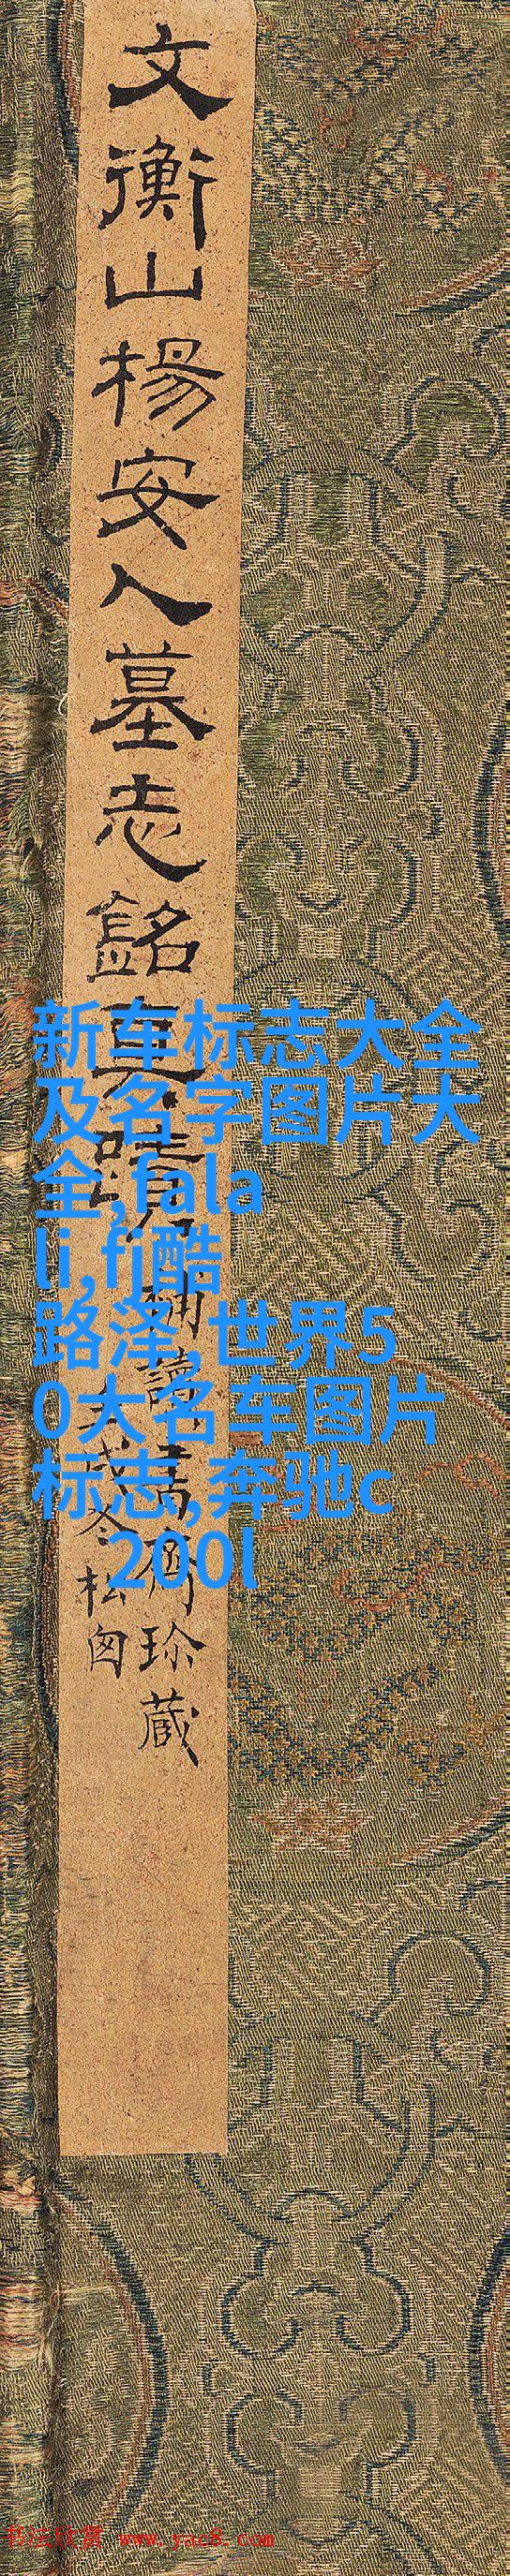 文衡山楊安人墓志銘真蹟
補讀書齋珍藏
戊冬松匃
新车标志大全
及名字图片大
全,fala
li,fj酷
路泽, 世界5
0大名车图片
标志,奔驰c
200l
书法欣赏 www.yac8.com